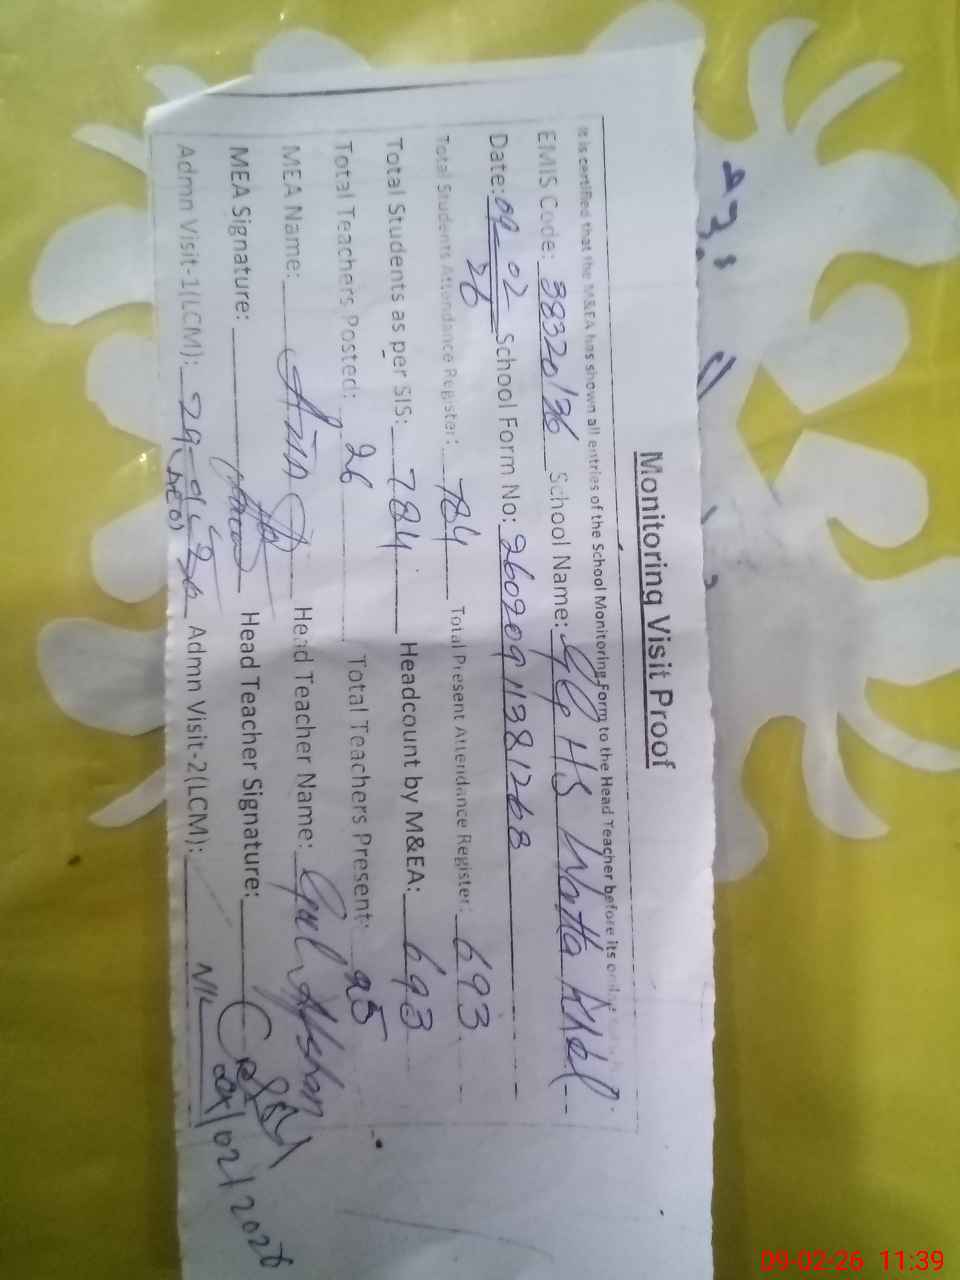 Monitoring Visit Proof
It is certified that the M&EA has shown all entries of the School Monitoring Form to the Head Teacher before its
EMIS Code: 38320136 School Name: HS Watta Khel
Date: 09-02 26 School Form No: 26020911381268
Total Students Attendance Register: 784 Total Present Attendance Register: 693
Total Students as per SIS: 784 Headcount by M&EA: 693
Total Teachers Posted: 26 Total Teachers Present: 25
MEA Name: Head Teacher Name: Gul Afshan
MEA Signature: Head Teacher Signature:
Admn Visit-1(LCM): (AEO) Admn Visit-2(LCM): NIL
09/02/2026
09-02-26 11:39